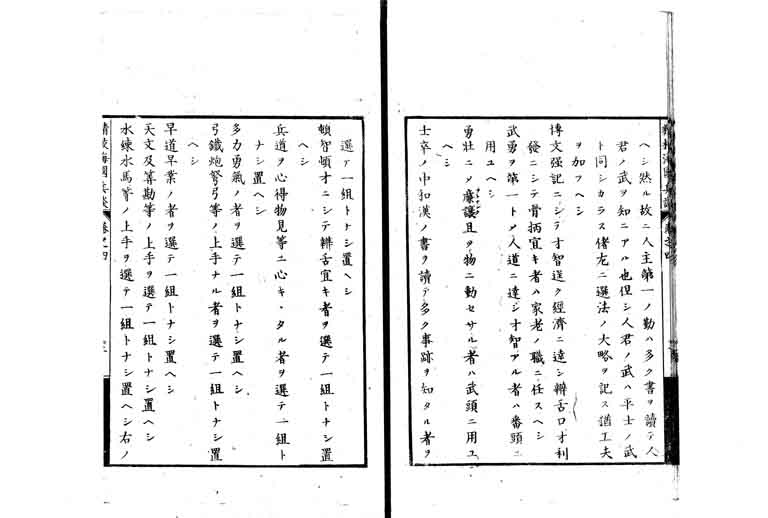 ヘシ然ル故ニ人主第一ノ勤ハ多ク書ヲ讀テ人
君ノ武ヲ知ニアル也但シ人君ノ武ハ平士ノ武
ト同シカラス偖左ニ選法ノ大略ヲ記ス猶工夫
ヲ加フヘシ
博文强記ニシテ才智逞ク經濟ニ達シ辨舌口才利
發ニシテ骨柄宜キ者ハ家老ノ職ニ任スヘシ
武勇ヲ第一トメ人道ニ達シ才智アル者ハ番頭ニ
用ユヘシ
勇壮ニメ廉讓且ヲ物ニ動セサル者ハ武頭ニ用ユ
ヘシ
士卒ノ中和漢ノ書ヲ讀テ多ク事跡ヲ知タル者ヲ
選テ一組トナシ置ヘシ
頓智頓才ニシテ辨舌宜キ者ヲ選テ一組トナシ置
ヘシ
兵道ヲ心得物見等ニ心キヽタル者ヲ選テ一組ト
ナシ置ヘシ
多力勇氣ノ者ヲ選テ一組トナシ置ヘシ
弓鐵炮弩弓等ノ上手ナル者ヲ選テ一組トナシ置
ヘシ
早道早業ノ者ヲ選テ一組トナシ置ヘシ
天文及算勘等ノ上手ヲ選テ一組トナシ置ヘシ
水練水馬等ノ上手ヲ選テ一組トナシ置ヘシ右ノ
精校海國兵談 卷之四